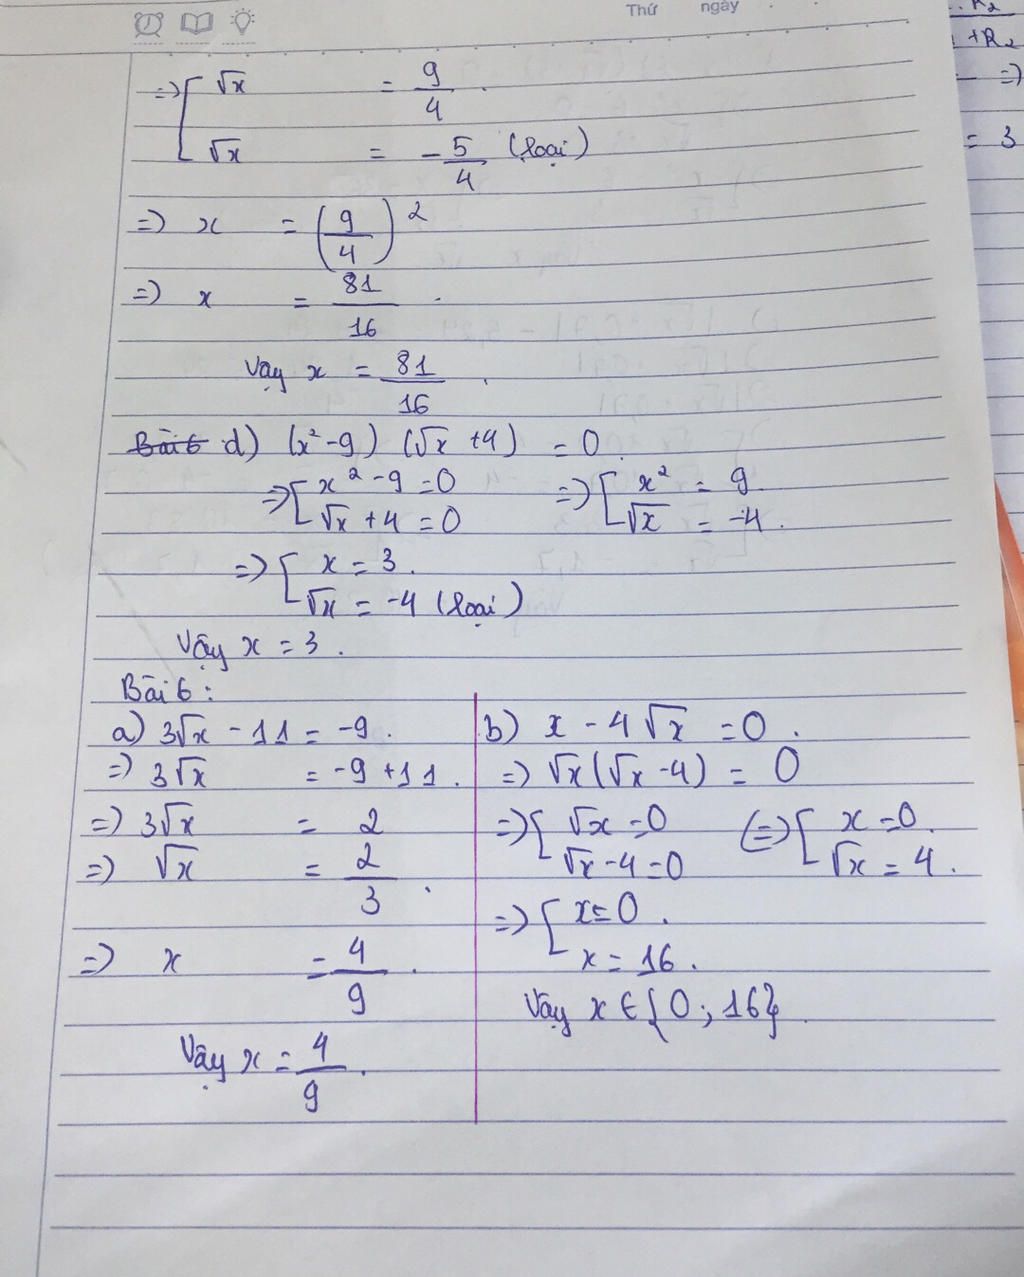 Thứ ngày
R2
+R2
=>
= 3
=> [ √x = 9/4
√x = -5/4 (loại)
=> x = (9/4)²
=> x = 81/16
Vậy x = 81/16.
Bài 6 d) (x²-9) (√x +4) = 0.
=> [ x² - 9 = 0 => [ x² = 9
√x + 4 = 0 √x = -4.
=> [ x = 3.
√x = -4 (loại)
Vậy x = 3.
Bài 6:
a) 3√x - 11 = -9.
=> 3√x = -9 + 11.
=> 3√x = 2
=> √x = 2/3.
=> x = 4/9.
Vậy x = 4/9.
b) x - 4√x = 0.
=> √x(√x - 4) = 0
=> [ √x = 0 (=> [ x = 0.
√x - 4 = 0 √x = 4.
=> [ x = 0.
x = 16.
Vậy x ∈ {0; 16}.